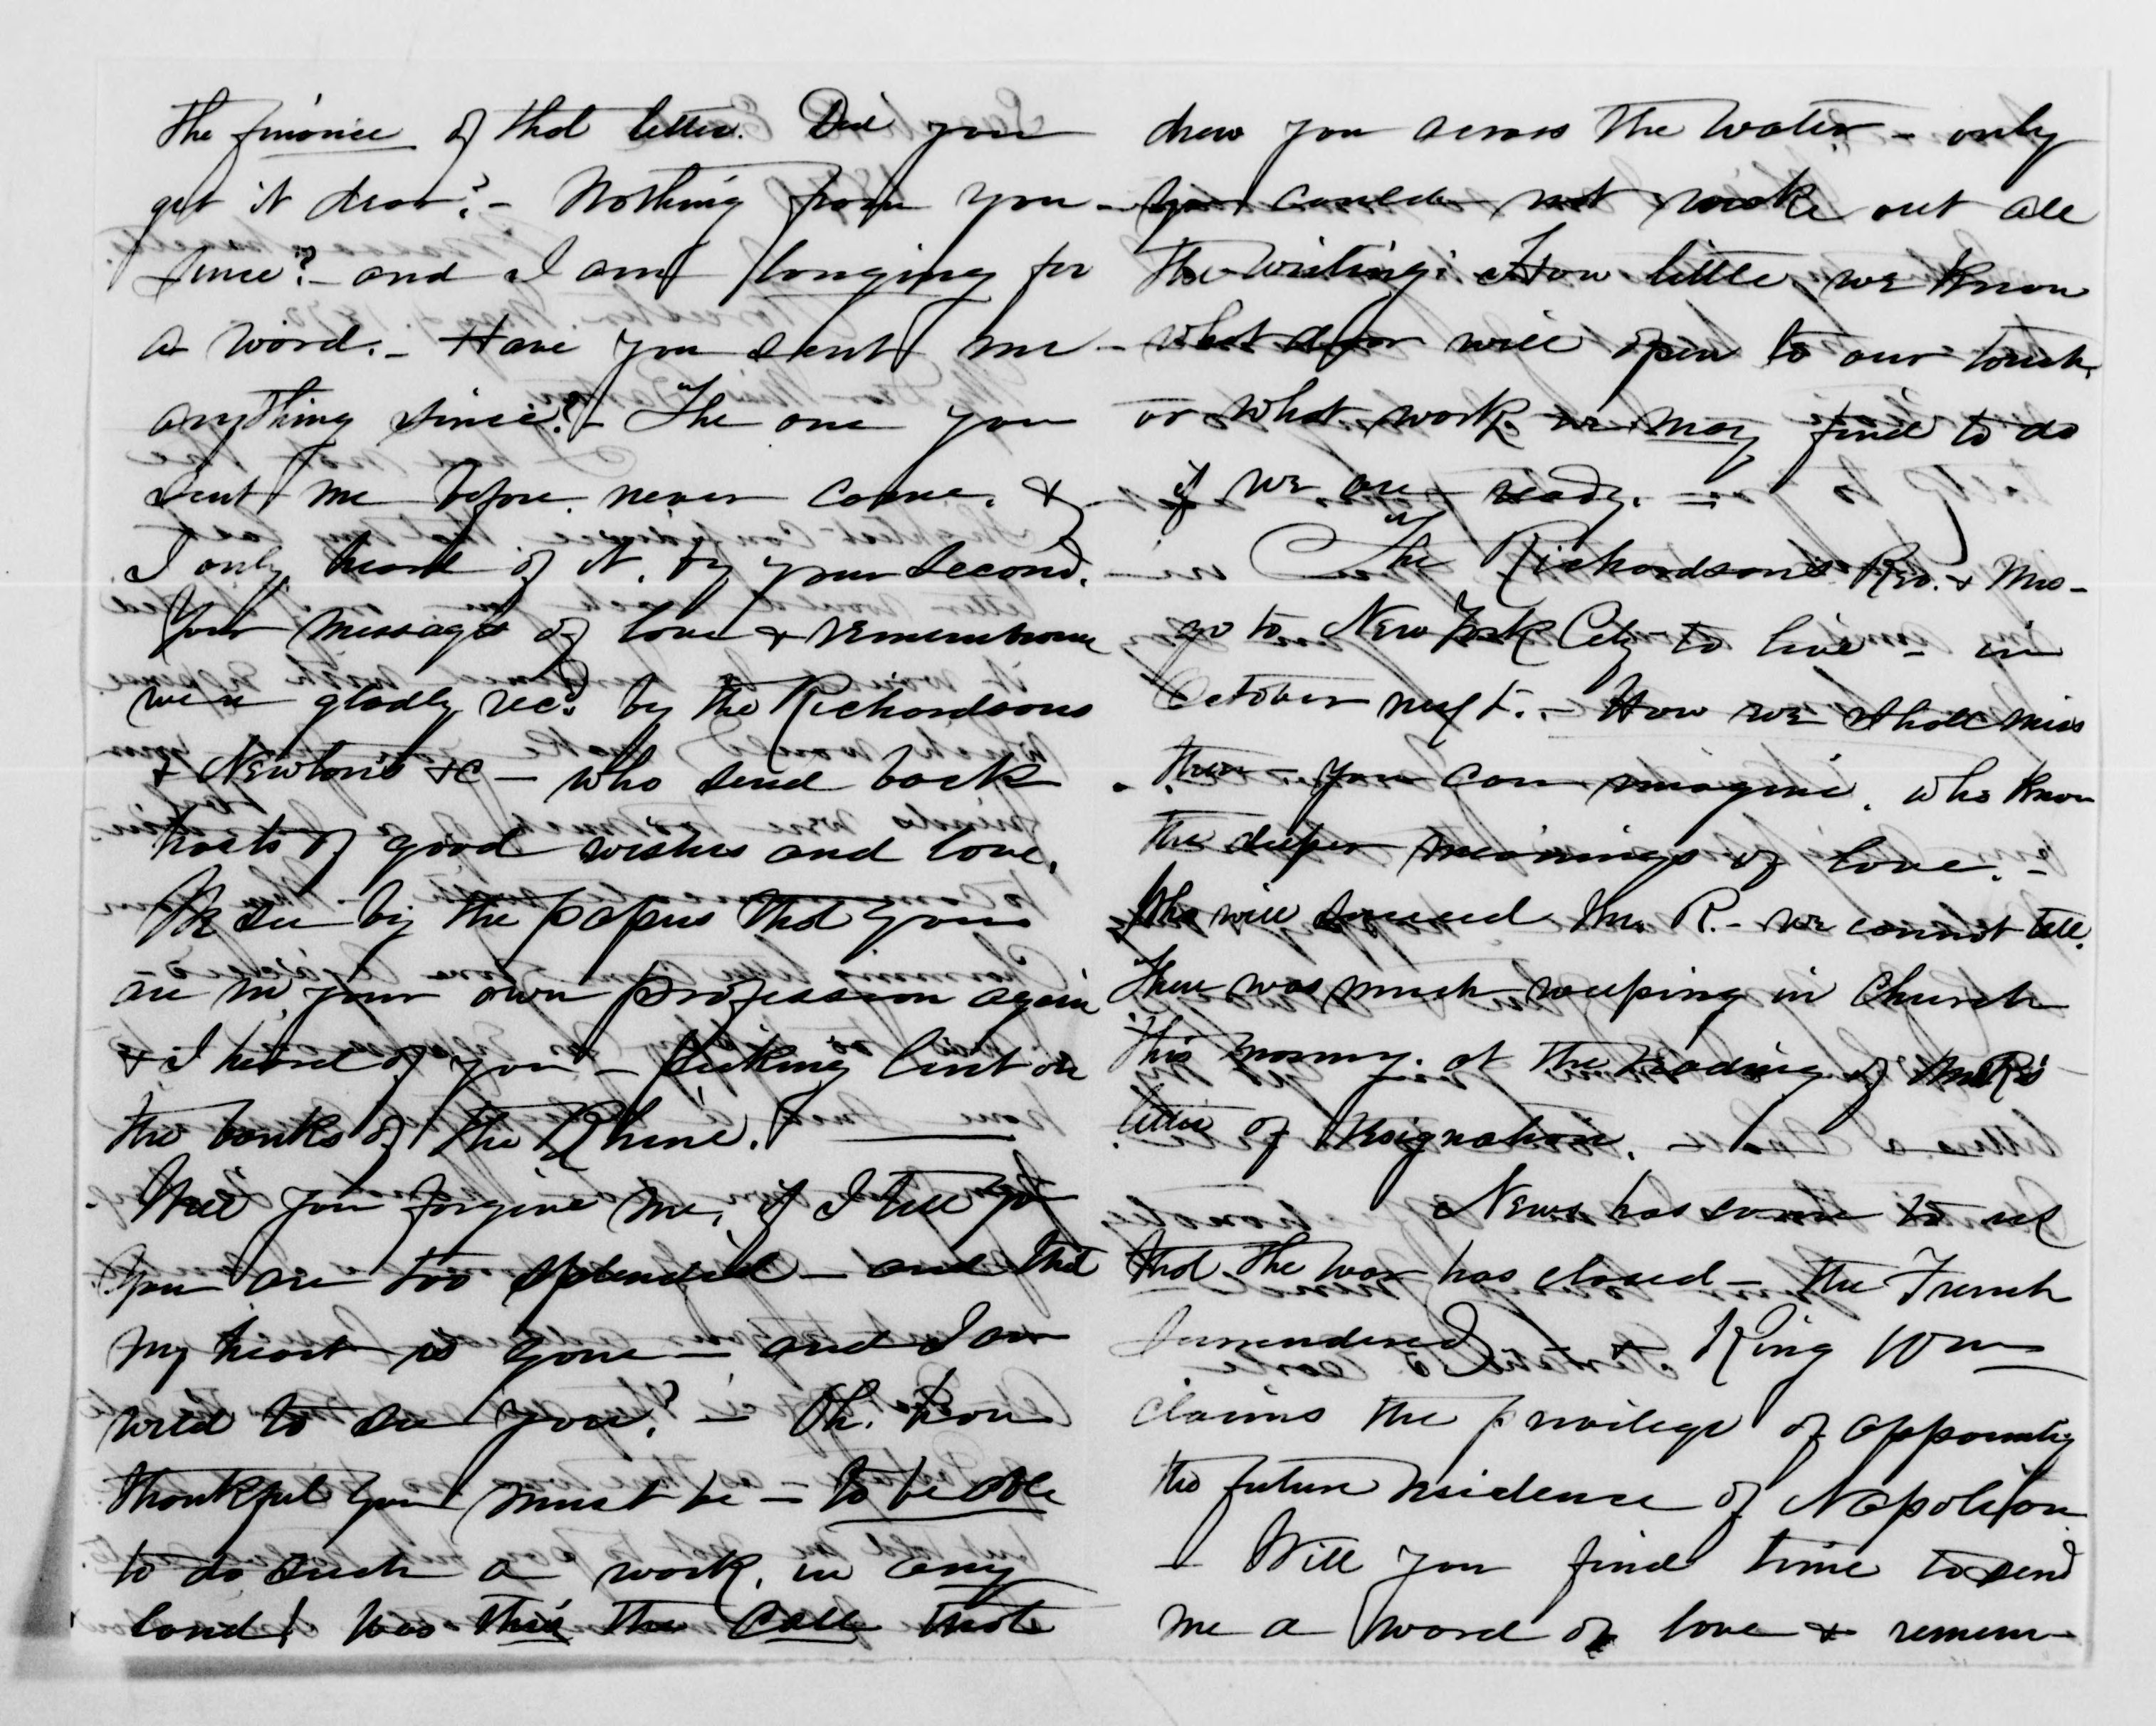 the finance of that letter. Did you
get it dear? - Nothing from you -
since? - and I am longing for
a word. - Have you sent me -
anything since? - The one you
sent me before never came. &
I only heard of it, by your second.
Your messages of love & remembrance
were gladly recd. by the Richardsons
& Newtons &c - who send back
hosts of good wishes and love.
We see by the papers that you
are in your own profession again
& I heard of you - picking lint on
the banks of the Rhine.
Will you forgive me, if I tell you
you are too splendid - and that
my heart is gone - and I am
wild to see you? - Oh. how
thankful you must be - to be able
to do such a work, in any
land! Was this the call that
drew you across the water - only
you could not make out all
the writing; How little we know
what door will open to our touch,
or what work we may find to do
if we are ready. -
The Richardson's Rev. & Mrs -
go to New York City to live - in
October next. - How we shall miss
them - you can imagine, who know
the deeper meanings of love. -
Who will succeed Mr. R. - we cannot tell.
There was much weeping in Church
this morning. at the reading of Mr R's
letter of resignation. -
News has come to us
that the war has closed - the French
surrendered & King Wm
claims the privilege of appointing
the future residence of Napoleon
- Will you find time to send
me a word of love & remem-